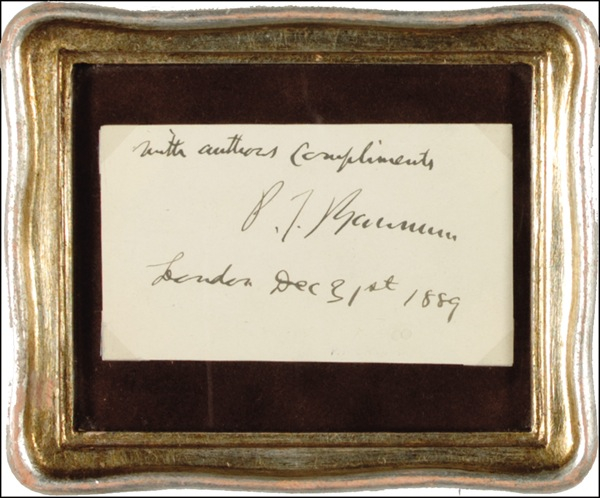 With authors Compliments
P. T. Barnum
London Dec 31st 1889